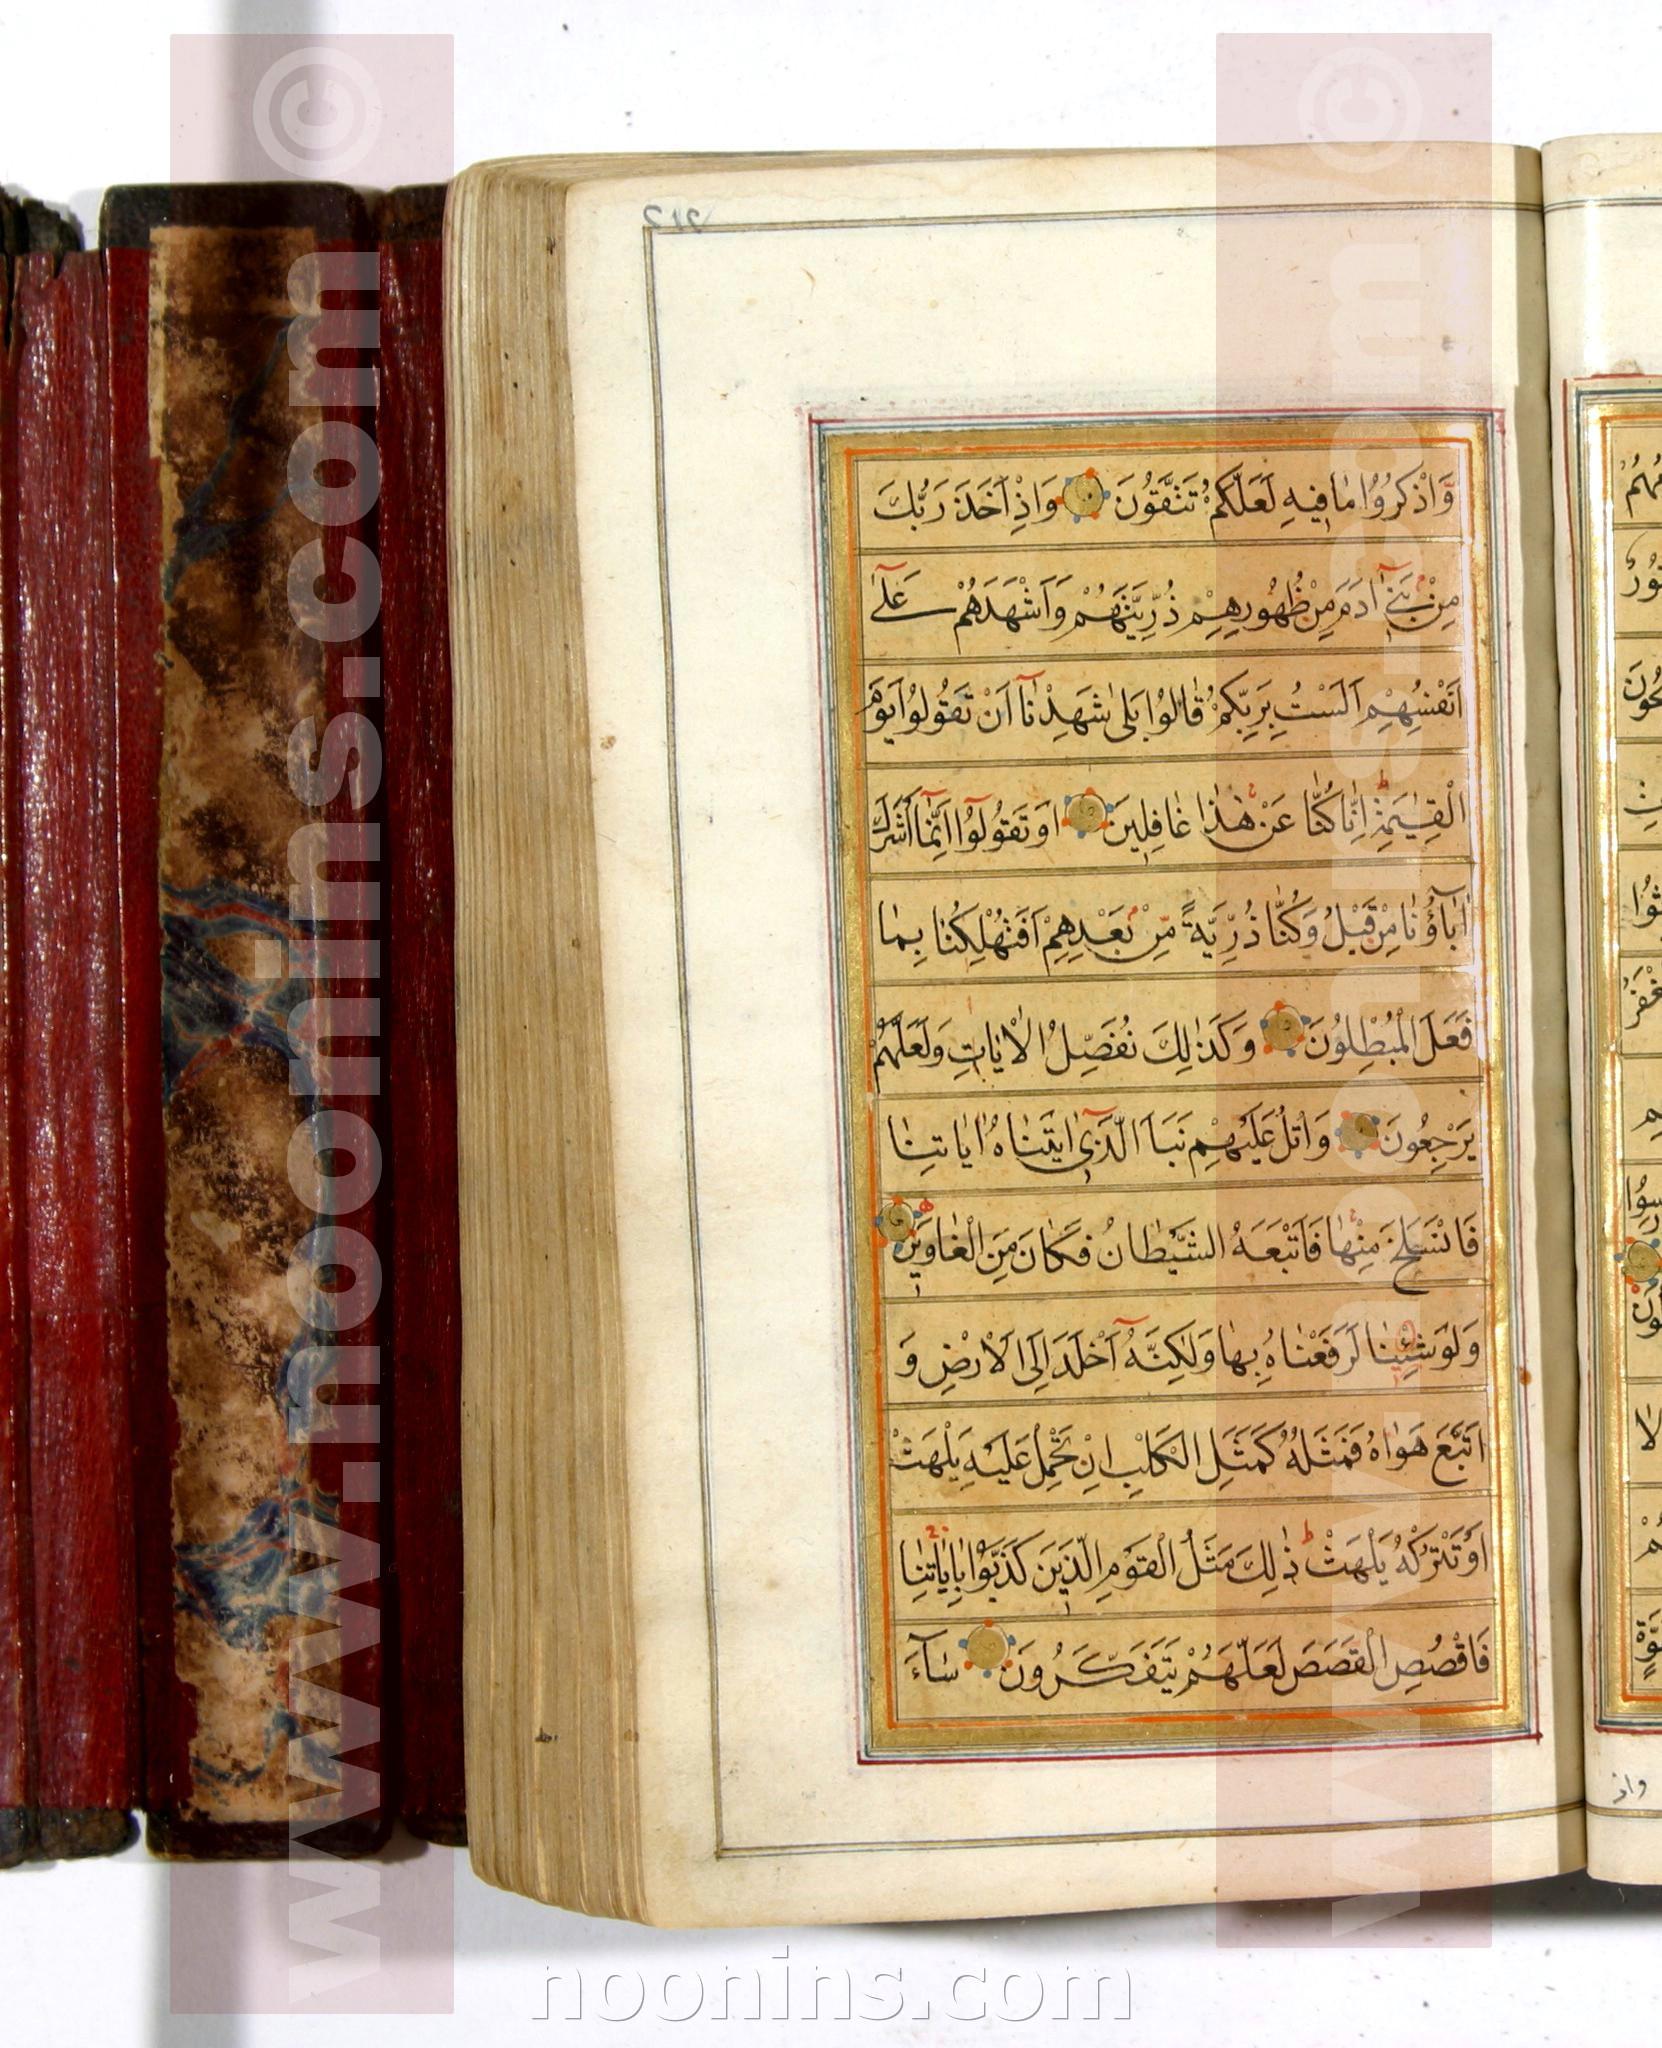 وَاذْكُرُوا مٰا فِيهِ لَعَلَّكُمْ تَتَّقُونَ وَاِذْ اَخَذَ رَبُّكَ
مِنْ بَنِيٓ اٰدَمَ مِنْ ظُهُورِهِمْ ذُرِّيَّتَهُمْ وَاَشْهَدَهُمْ عَلٰٓى
اَنْفُسِهِمْ اَلَسْتُ بِرَبِّكُمْ قٰالُوا بَلٰى شَهِدْنٰٓا اَنْ تَقُولُوا يَوْمَ
الْقِيٰمَةِ اِنّٰا كُنّٰا عَنْ هٰذٰا غٰافِلِينَ اَوْ تَقُولُوٓا اِنَّمٰٓا اَشْرَكَ
اٰبٰٓاؤُنٰا مِنْ قَبْلُ وَكُنّٰا ذُرِّيَّةً مِنْ بَعْدِهِمْ اَفَتُهْلِكُنٰا بِمٰا
فَعَلَ الْمُبْطِلُونَ وَكَذٰلِكَ نُفَصِّلُ الْاٰيٰاتِ وَلَعَلَّهُمْ
يَرْجِعُونَ وَاتْلُ عَلَيْهِمْ نَبَاَ الَّذِيٓ اٰتَيْنٰاهُ اٰيٰاتِنٰا
فَانْسَلَخَ مِنْهٰا فَاَتْبَعَهُ الشَّيْطٰانُ فَكٰانَ مِنَ الْغٰاوِينَ
وَلَوْ شِئْنٰا لَرَفَعْنٰاهُ بِهٰا وَلٰكِنَّهُٓ اَخْلَدَ اِلَى الْاَرْضِ وَ
اتَّبَعَ هَوٰاهُ فَمَثَلُهُ كَمَثَلِ الْكَلْبِ اِنْ تَحْمِلْ عَلَيْهِ يَلْهَثْ
اَوْ تَتْرُكْهُ يَلْهَثْ ذٰلِكَ مَثَلُ الْقَوْمِ الَّذِينَ كَذَّبُوا بِاٰيٰاتِنٰا
فَاقْصُصِ الْقَصَصَ لَعَلَّهُمْ يَتَفَكَّرُونَ سٰٓاءَ
واذ
www.noonins.com ©
noonins.com